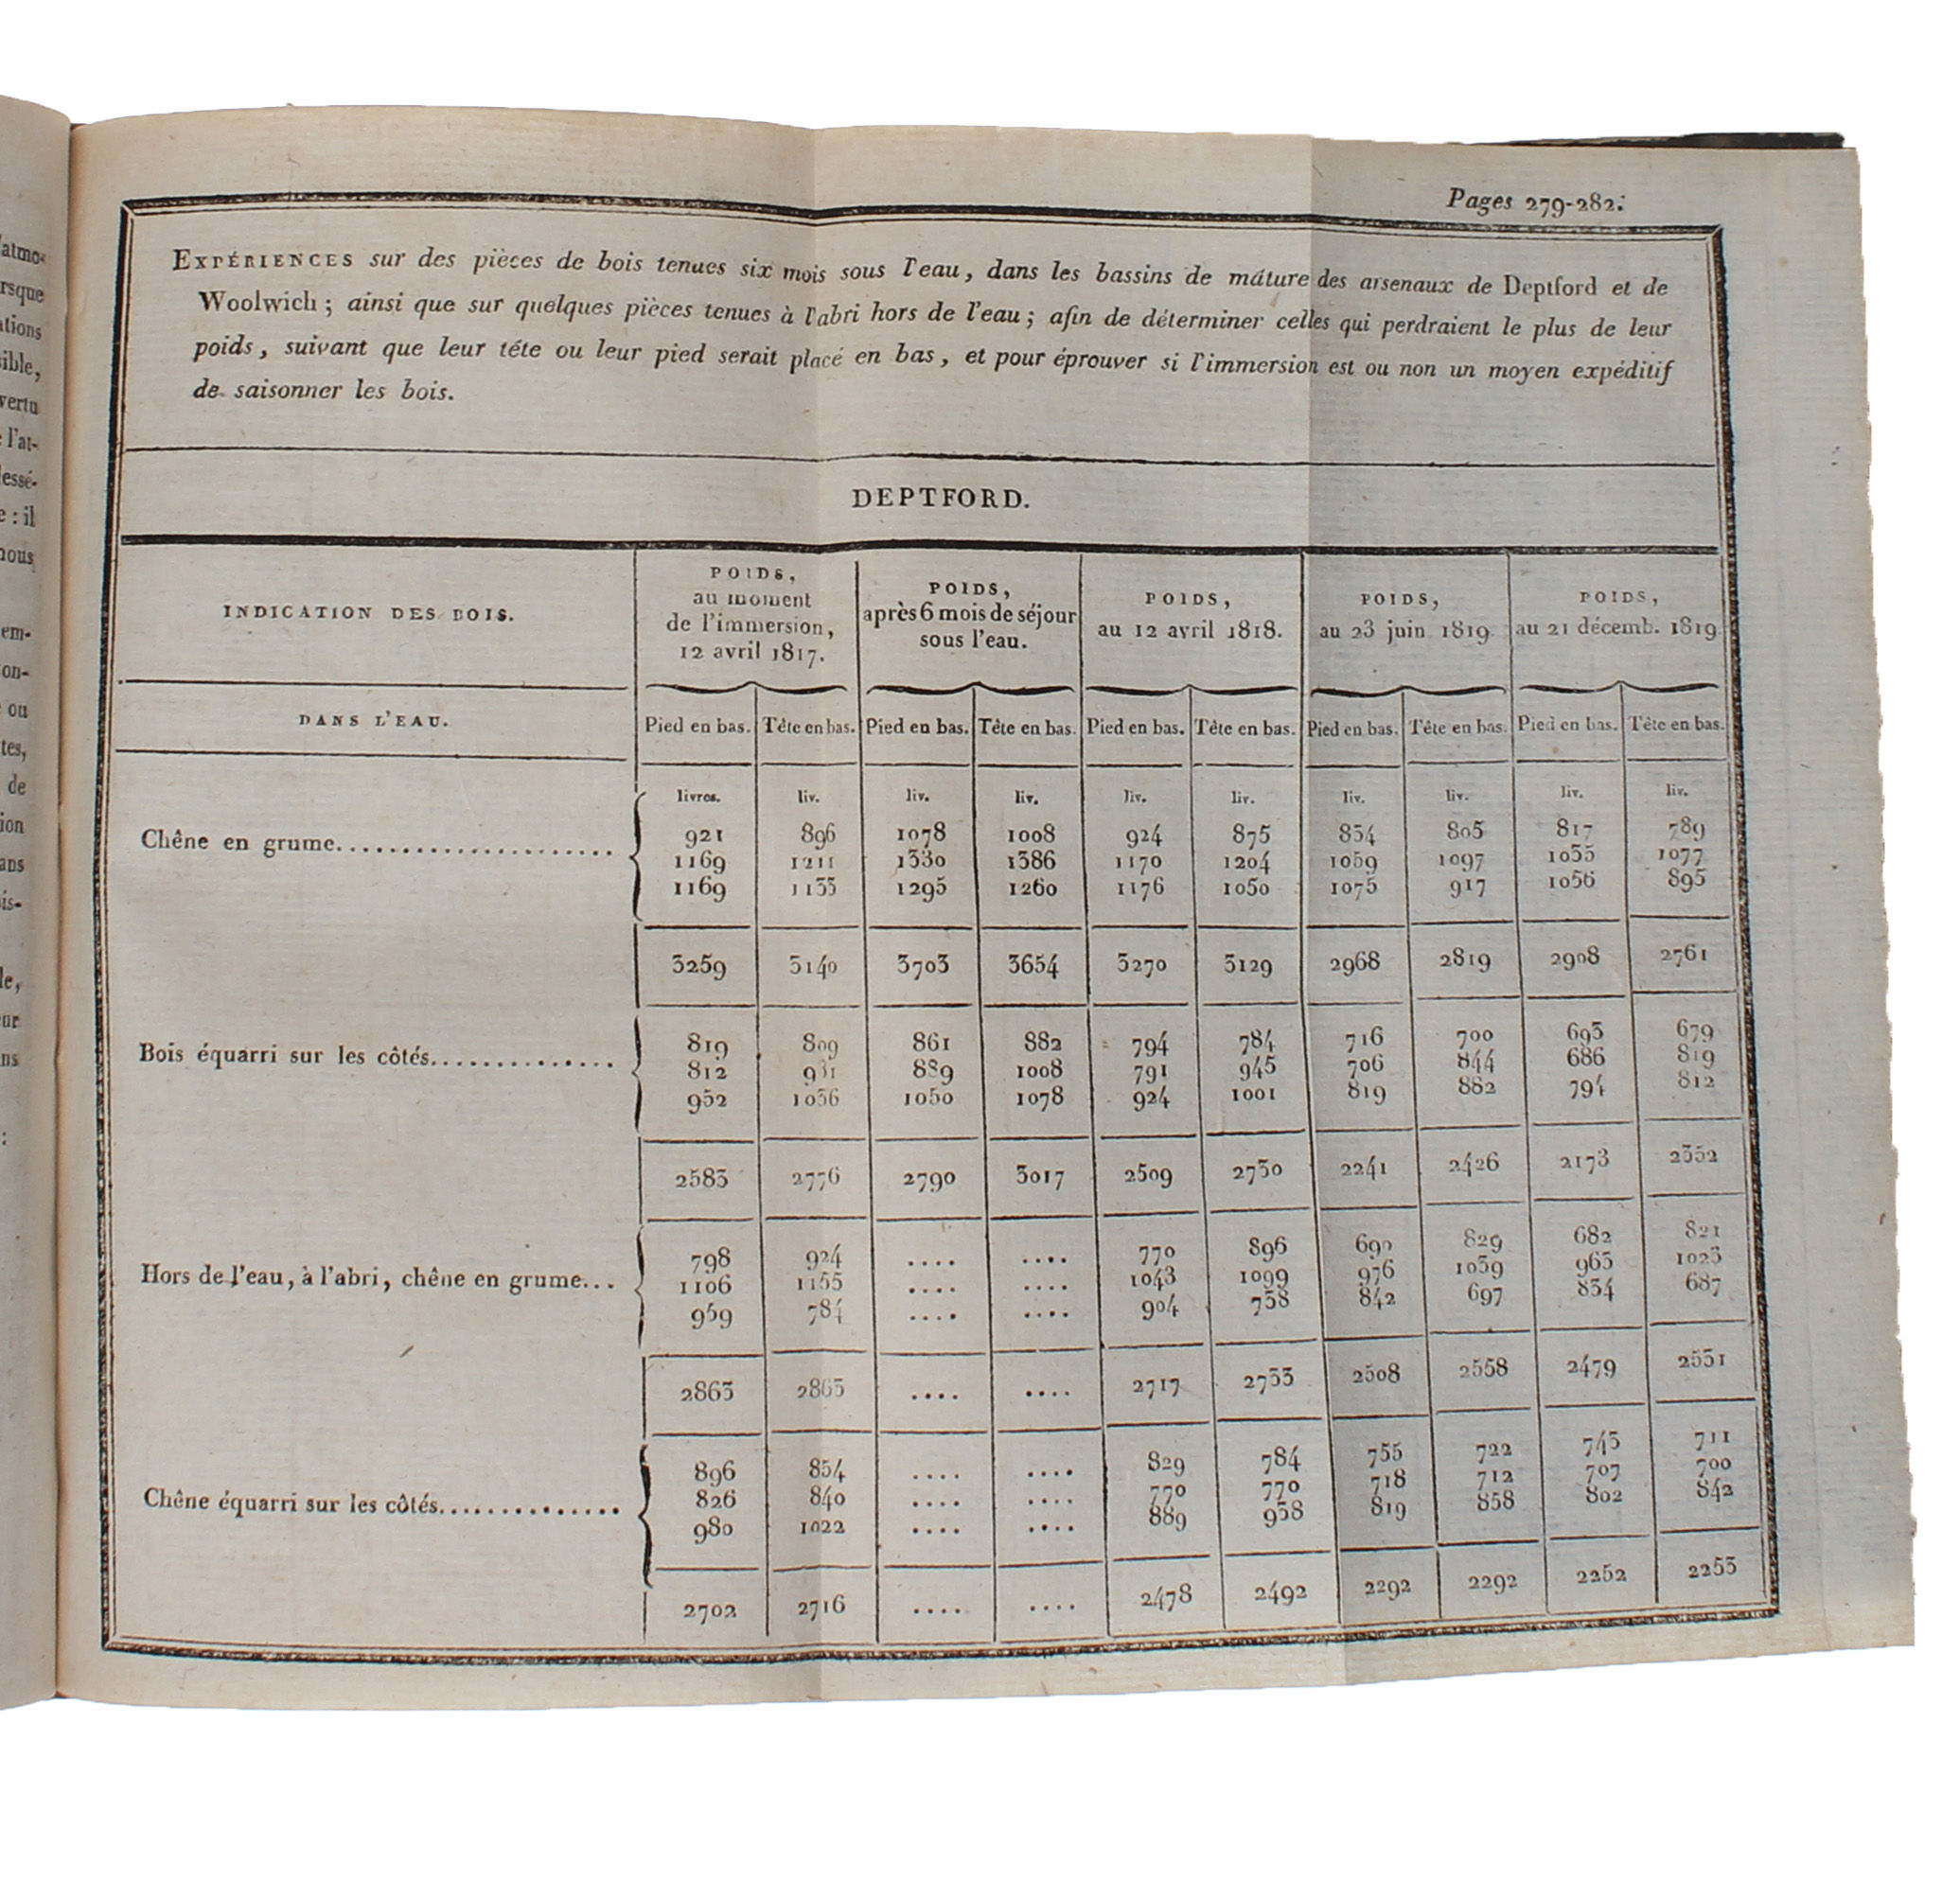 'atmo-
rsque
ations
sible,
vertu
e l'at-
lessé-
e : il
nous
em-
on-
ou
tes,
de
ion
ans
is-
le,
eur
ns
:
Pages 279-282.
EXPÉRIENCES sur des pièces de bois tenues six mois sous l'eau, dans les bassins de mâture des arsenaux de Deptford et de
Woolwich ; ainsi que sur quelques pièces tenues à l'abri hors de l'eau ; afin de déterminer celles qui perdraient le plus de leur
poids, suivant que leur tête ou leur pied serait placé en bas, et pour éprouver si l'immersion est ou non un moyen expéditif
de saisonner les bois.
DEPTFORD.
INDICATION DES BOIS. POIDS, au moment de l'immersion, 12 avril 1817. POIDS, après 6 mois de séjour sous l'eau. POIDS, au 12 avril 1818. POIDS, au 23 juin 1819. POIDS, au 21 décemb. 1819.
DANS L'EAU. Pied en bas. Tête en bas. Pied en bas. Tête en bas. Pied en bas. Tête en bas. Pied en bas. Tête en bas. Pied en bas. Tête en bas.
livres. liv. liv. liv. liv. liv. liv. liv. liv. liv.
Chêne en grume..................... 921 896 1078 1008 924 875 834 805 817 789
1169 1211 1330 1386 1170 1204 1059 1097 1035 1077
1169 1133 1295 1260 1176 1050 1075 917 1056 895
3259 3140 3703 3654 3270 3129 2968 2819 2908 2761
Bois équarri sur les côtés.............. 819 809 861 882 794 784 716 700 693 679
812 931 889 1008 791 945 706 844 686 819
952 1036 1050 1078 924 1001 819 882 794 812
2583 2776 2790 3017 2509 2730 2241 2426 2173 2352
Hors de l'eau, à l'abri, chêne en grume... 798 924 .... .... 770 896 690 829 682 821
1106 1155 .... .... 1043 1099 976 1039 963 1023
959 784 .... .... 904 738 842 697 834 687
2863 2863 .... .... 2717 2733 2508 2558 2479 2531
Chêne équarri sur les côtés.............. 896 854 .... .... 829 784 755 722 743 711
826 840 .... .... 770 770 718 712 707 700
980 1022 .... .... 889 938 819 858 802 842
2702 2716 .... .... 2478 2492 2292 2292 2252 2253